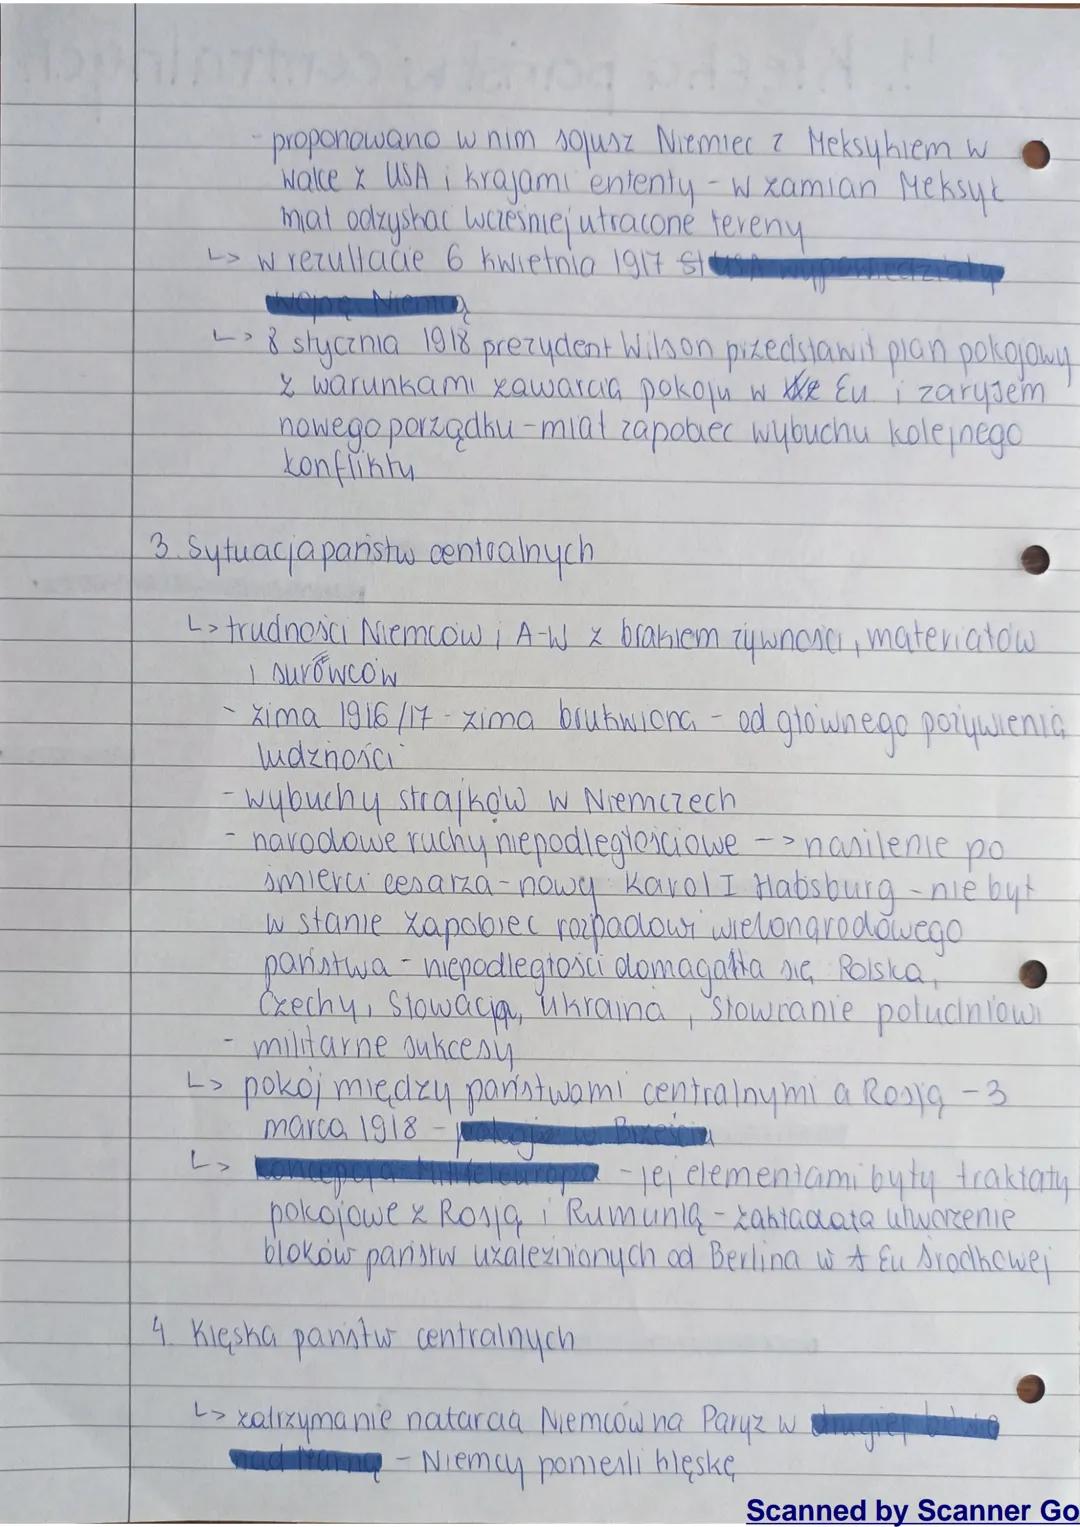 - proponowano w nim sojusz Niemiec z Meksykiem w
walce z USA i krajami ententy - w zamian Meksyk
miał odzyskać wcześniej utracone tereny
↳ w rezultacie 6 kwietnia 1917 USA wypowiedziały
wojnę Niemcą
↳ 8 stycznia 1918 prezydent Wilson przedstawił plan pokojowy
z warunkami zawarcia pokoju w Eu i zarysem
nowego porządku - miał zapobiec wybuchu kolejnego
konfliktu
3. Sytuacja państw centralnych
↳ trudności Niemców i A-W z brakiem żywności, materiałów
i surowców
- zima 1916/17 - zima brukwiana - od głównego pożywienia
ludzności
- wybuchy strajków w Niemczech
- narodowe ruchy niepodległościowe -> nasilenie po
śmierci cesarza - nowy Karol I Habsburg - nie był
w stanie zapobiec rozpadowi wielonarodowego
państwa - niepodległości domagała się Polska,
Czechy, Słowacja, Ukraina, Słowianie południowi
- militarne sukcesy
↳ pokój między państwami centralnymi a Rosją - 3
marca 1918 - pokój w Brześciu
↳ koncepcja Mitteleuropa - jej elementami były traktaty
pokojowe z Rosją i Rumunią - zakładała utworzenie
bloków państw uzależnionych od Berlina w Eu Środkowej
4. Klęska państw centralnych
↳ zatrzymanie natarcia Niemców na Paryż w drugiej bitwie
nad Marną - Niemcy ponieśli klęskę
Scanned by Scanner Go